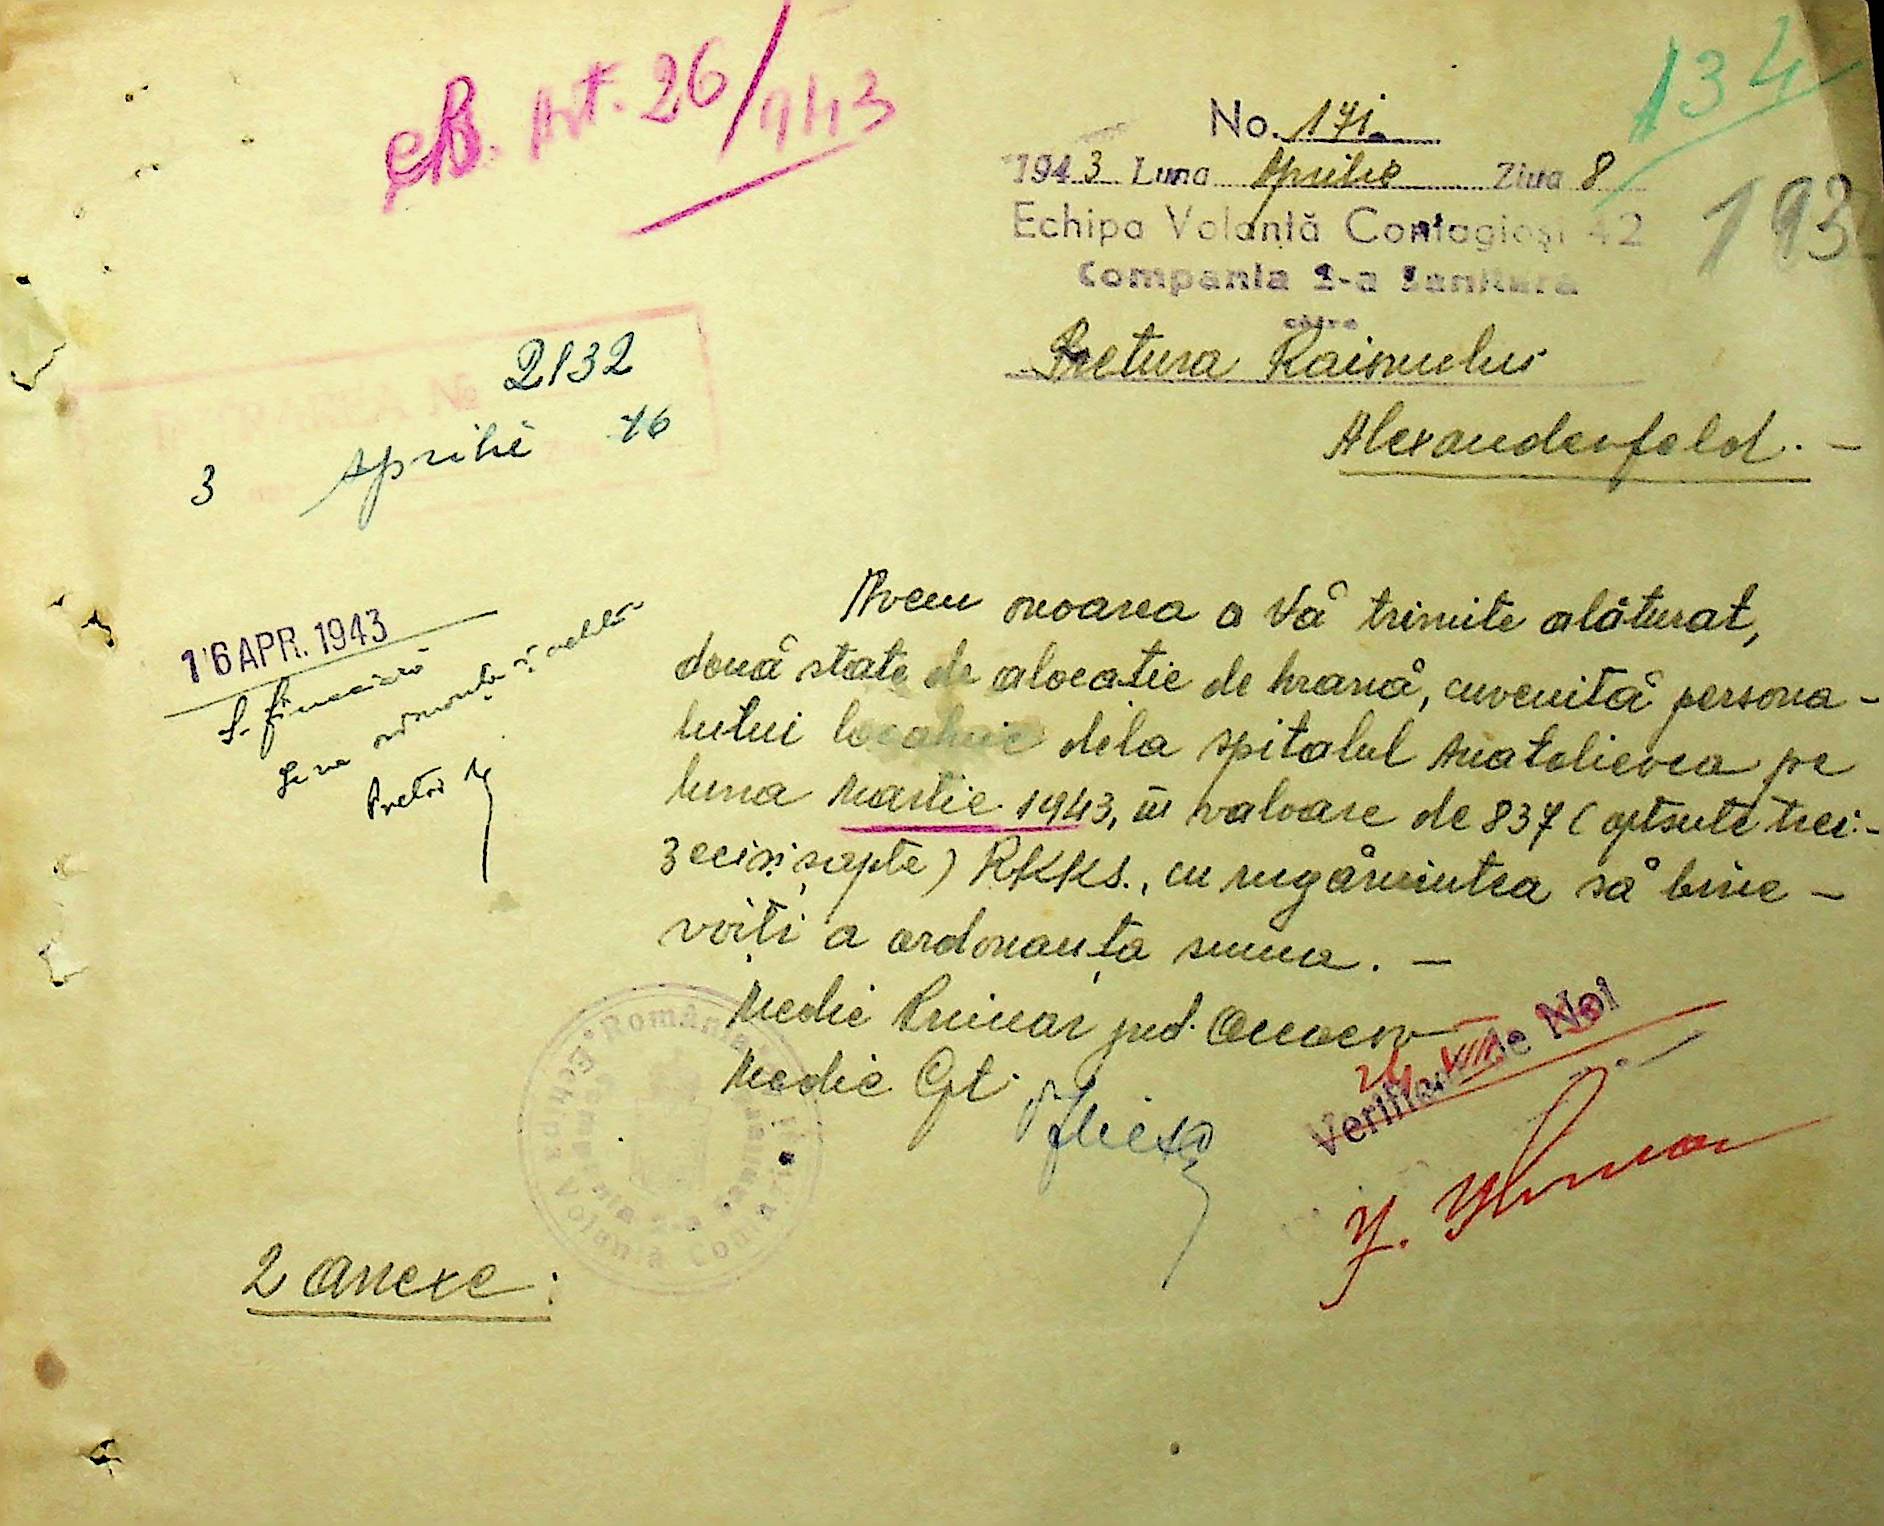 Art. 26/943
134
No. 171.
1943 Luna Aprilie Ziua 8
193
Echipa Volantă Contagioși 42
Compania 2-a Sanitara
către
Pretura Raionului
Alexanderfeld. —
2132
3 Aprilie 16
16 APR. 1943
S. financiară
Se va ordonanța și achita
Pretor
Avem onoarea a Vă trimite alăturat,
două state de alocație de hrană, cuvenită persona-
lului localnic dela spitalul Anatolievca pe
luna Martie 1943, în valoare de 837 (optsute trei-
zecișișapte) RKKS., cu rugămintea să bine-
voiți a ordonanța suma. —
Medic Primar jud.
Medic Cpt.
Verificat de Noi
România
Echipa Volantă
Compania 2-a Sanitara
2 Anexe: